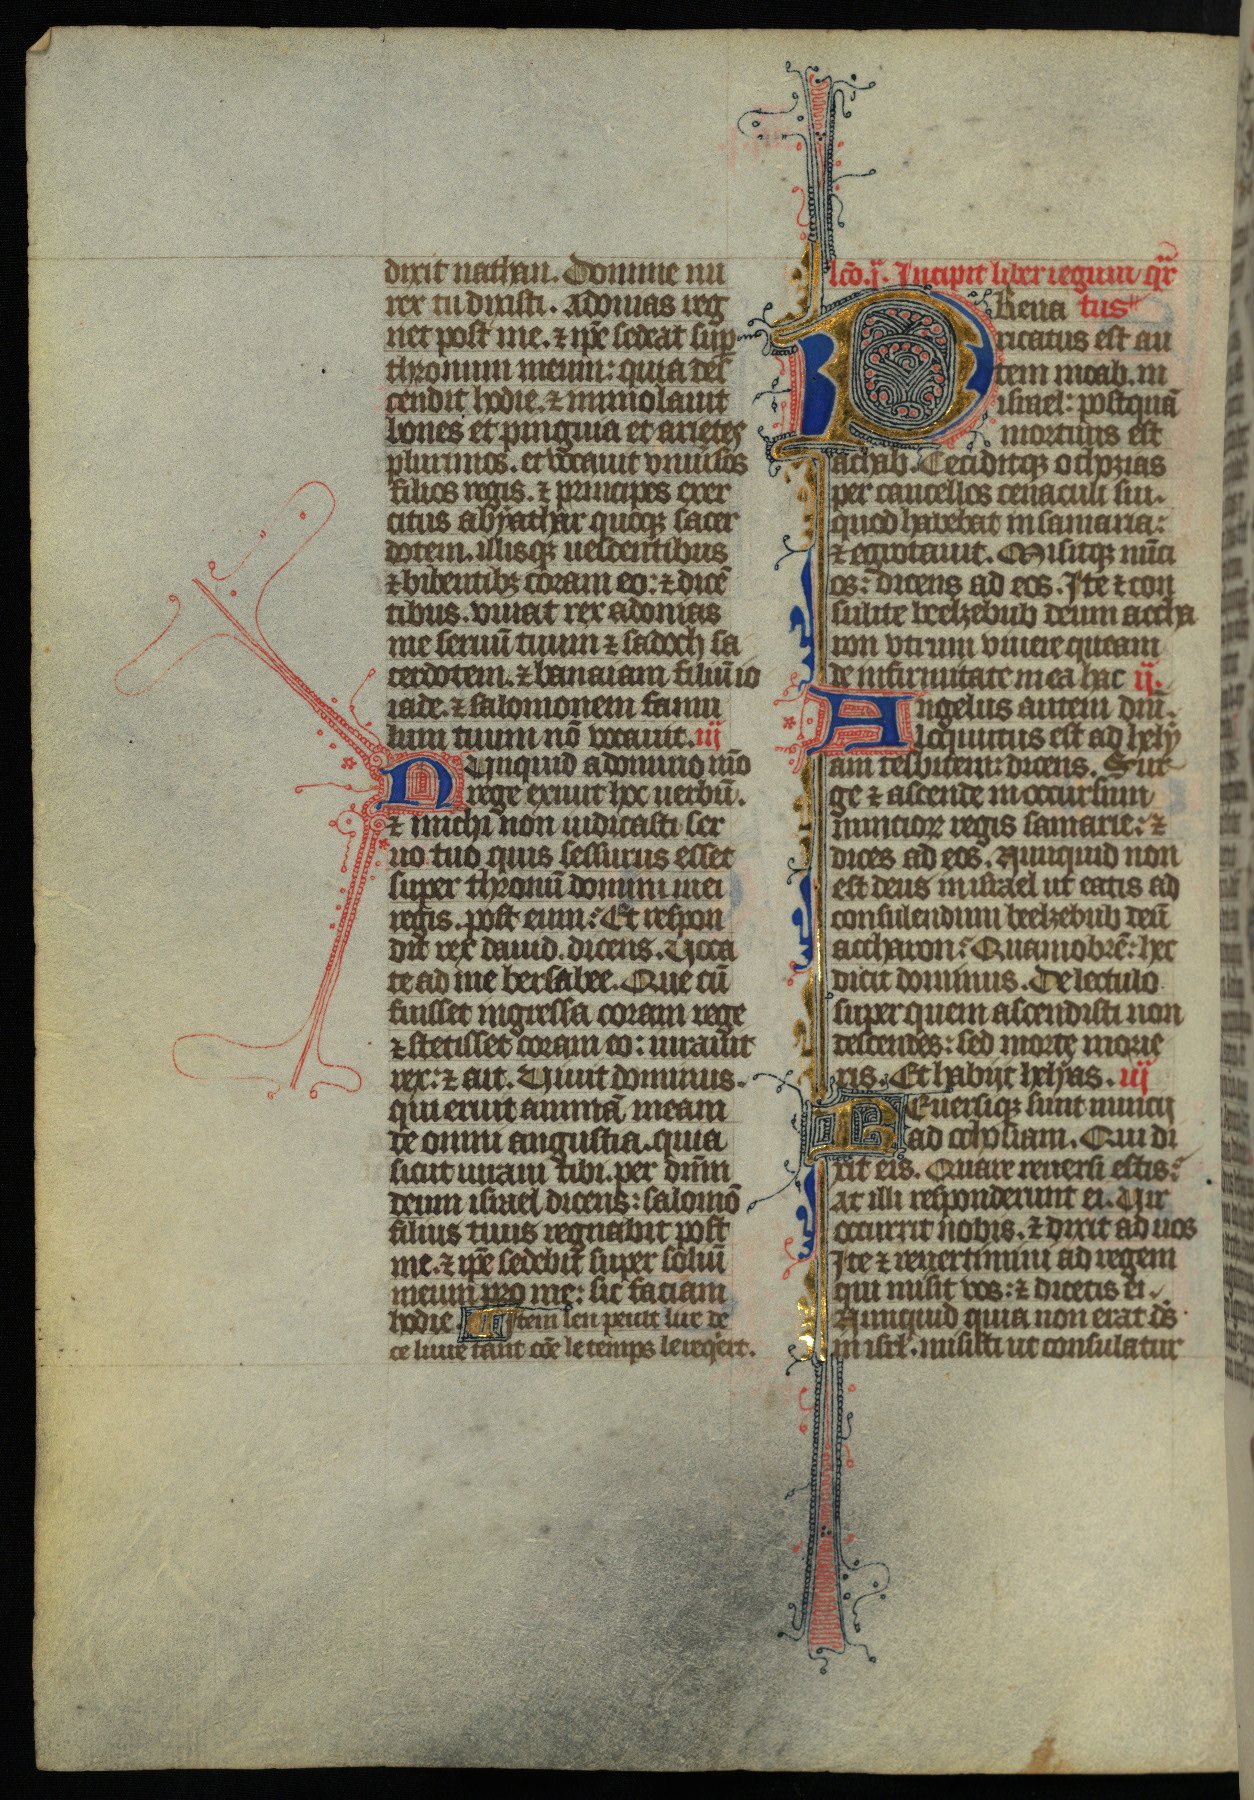 dixit nathan. Domine mi
rex tu dixisti. Adonias reg
net post me. ⁊ ip̃e sedeat sup
thronum meum: quia des
cendit hodie. ⁊ immolauit
boues et pinguia et arietes
plurimos. et vocauit vniu̾sos
filios regis. ⁊ principes exer
citus abyathar quoqꝫ sacer
dotem. illisqꝫ uescentibus
⁊ bibentibꝫ coram eo: ⁊ dicẽ
tibus. viuat rex adonias
me seruũ tuum ⁊ sadoch sa
cerdotem. ⁊ banaiam filiũ io
iade. ⁊ salomonem famu
lum tuum nõ vocauit. iij
NUnquid a domino mõ
rege exiuit hoc uerbũ.
⁊ michi non indicasti ser
uo tuo quis sessurus esset
super thronũ domini mei
regis. post eum: Et respon
dit rex dauid. dicens. Voca
te ad me bersabee. Que cũ
fuisset ingressa coram rege
⁊ stetisset coram eo: iurauit
rex: ⁊ ait. Viuit dominus.
qui eruit animã meam
de omni angustia. quia
sicut iuraui tibi. per dñm
deum israel dicens: salomõ
filius tuus regnabit post
me. ⁊ ip̃e sedebit super soliũ
meum pro me: sic faciam
hodie. Item len peut lire de
ce liure tant cõe le temps le req̃ert.
lcõ. j̃. Incipit liber regum qr̃
PReua tus
ricatus est au
tem moab. in
israel: postquã
mortuus est
achab. Ceciditqꝫ ochozias
per cancellos cenaculi sui.
quod habebat in samaria:
⁊ egrotauit. Misitqꝫ nũci
os: dicens ad eos. Ite ⁊ con
sulite beelzebub deum accha
ron vtrum viuere queam
de infirmitate mea hac ij.
Angelus autem dñi.
locutus est ad hely
am tesbitem: dicens. Sur
ge ⁊ ascende in occursum
nuncioꝝ regis samarie: ⁊
dices ad eos. Nunquid non
est deus in israel ut eatis ad
consulendum beelzebub deũ
accharon: Quamobrẽ: hec
dicit dominus. De lectulo
super quem ascendisti non
descendes: sed morte morie
ris. Et habijt helyas. iij
REuersiqꝫ sunt nuncij
ad ochosiam. Qui di
xit eis. Quare reuersi estis:
At illi responderunt ei. Vir
occurrit nobis. ⁊ dixit ad nos
Ite ⁊ reuertimini ad regem
qui misit vos: ⁊ dicetis ei.
Nunquid quia non erat dš
in isrł. misisti ut consulatur